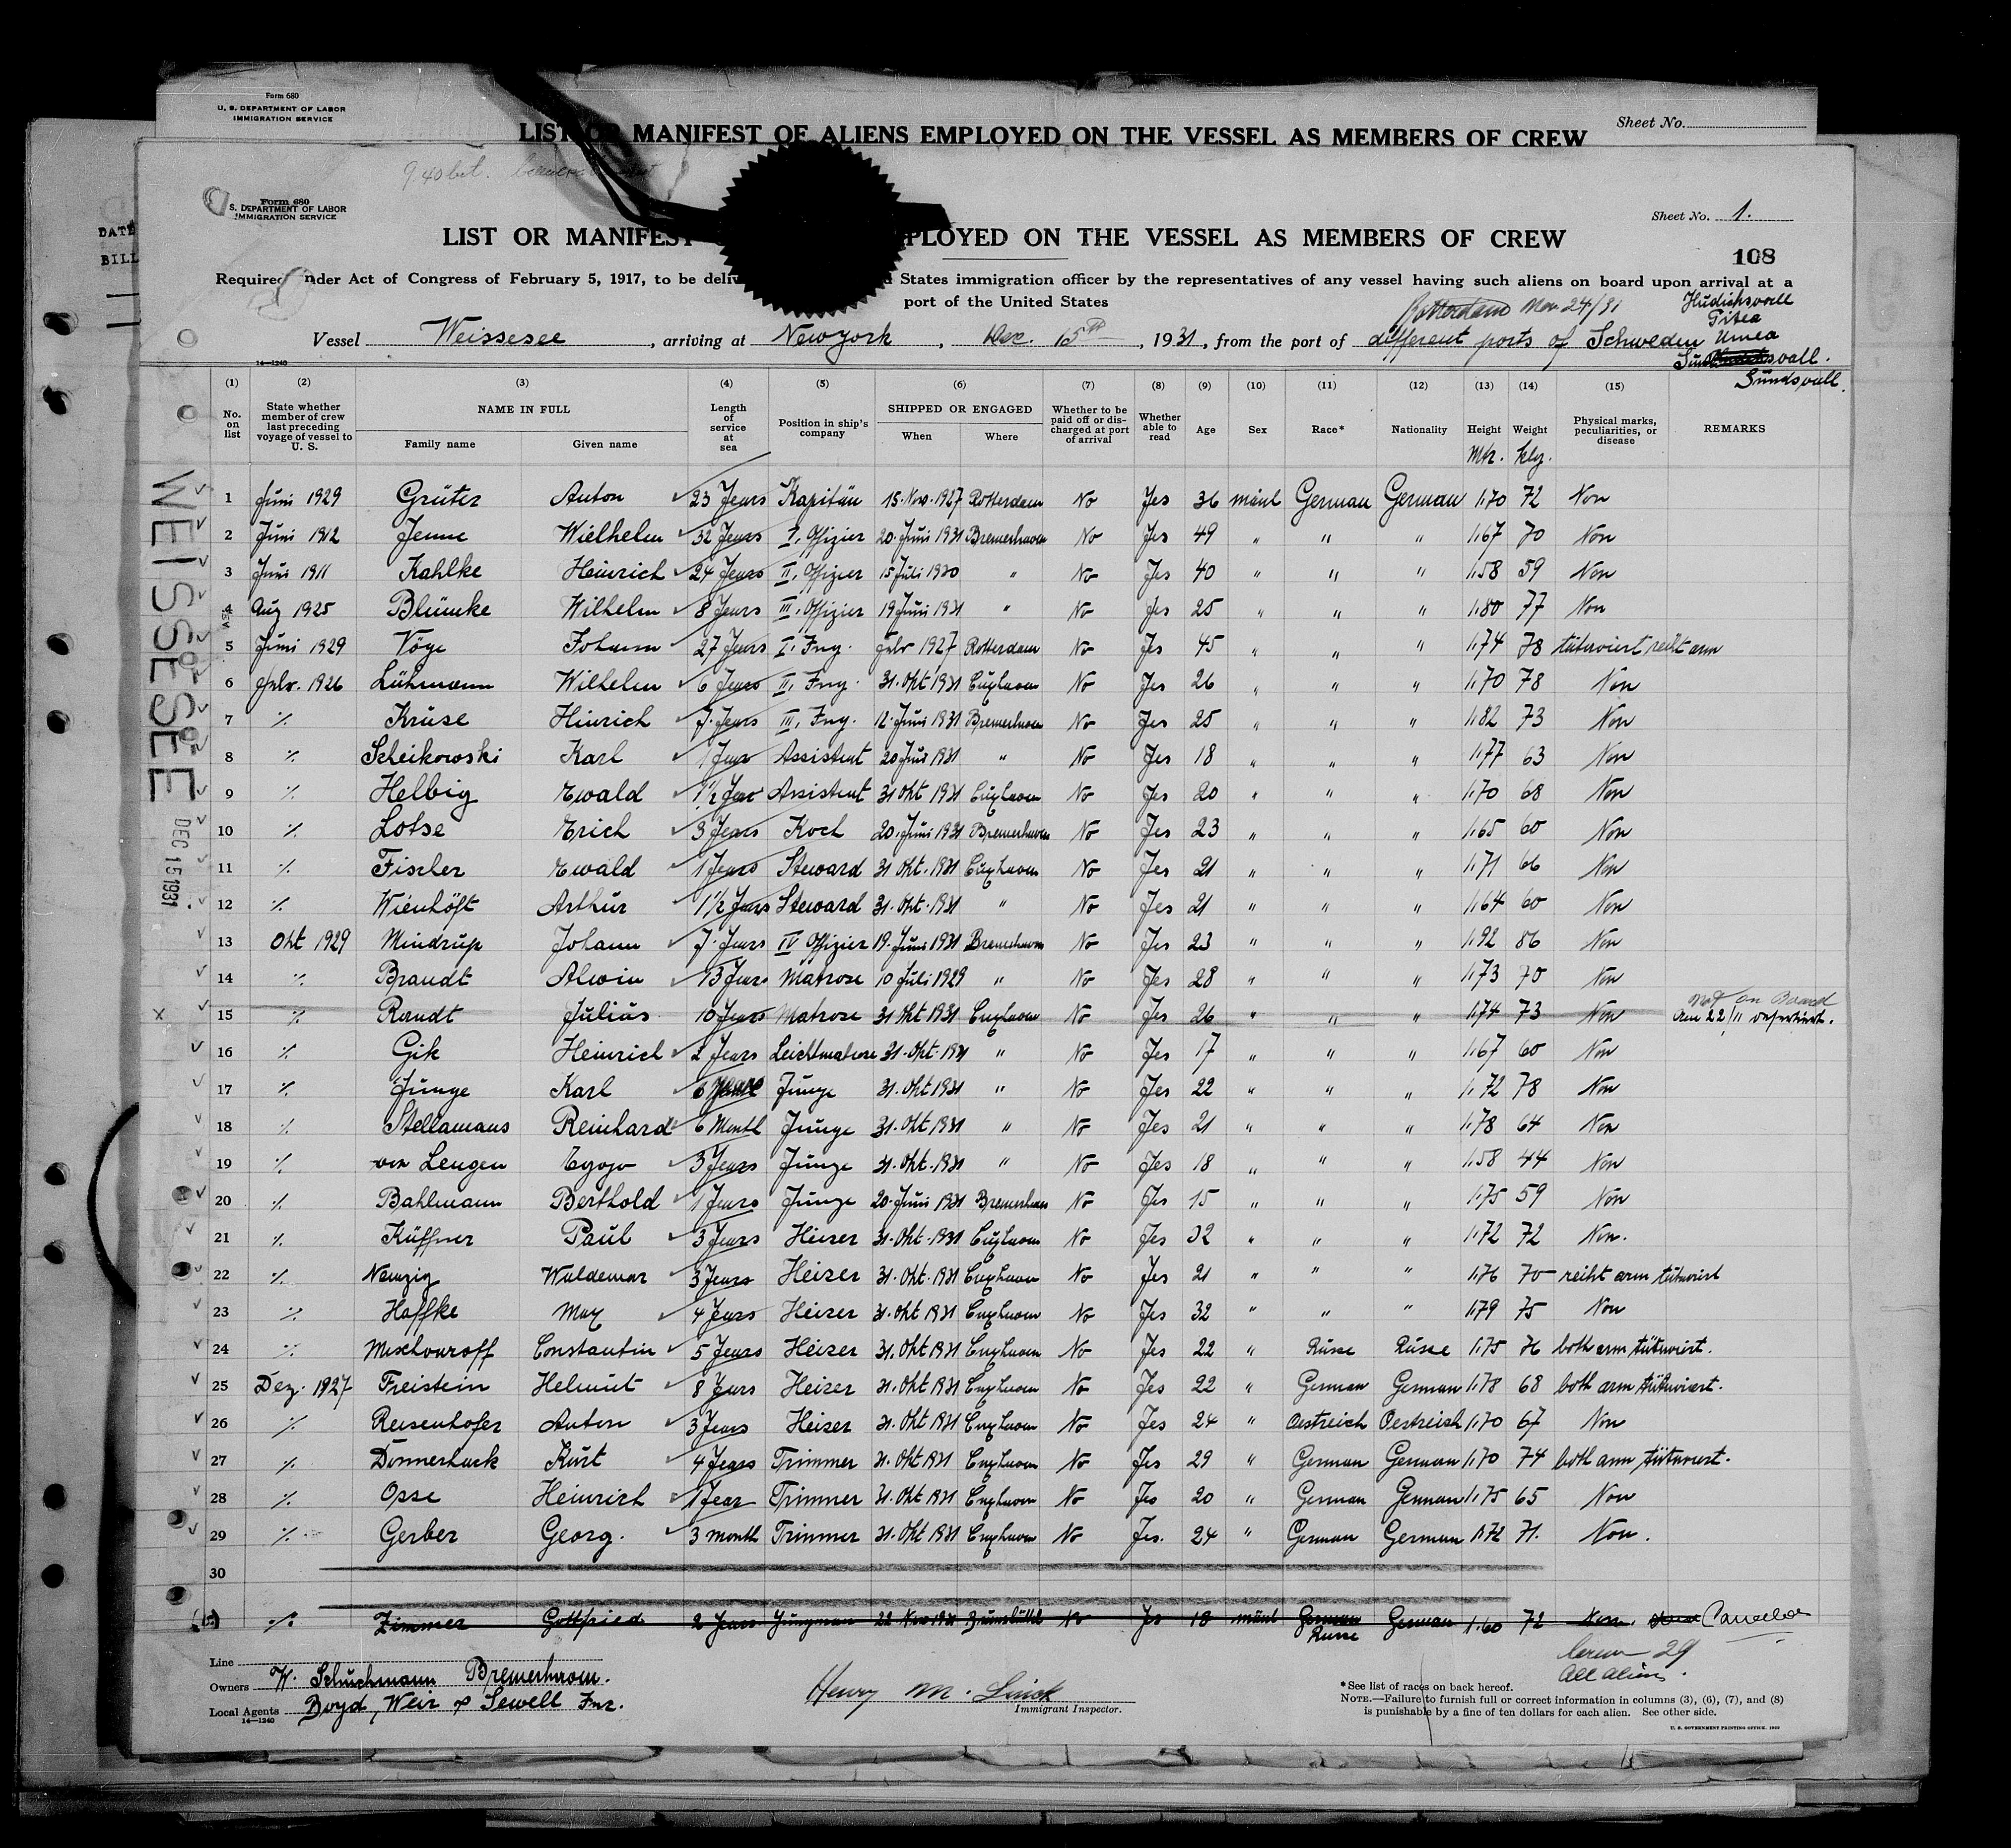 Form 680
U. S. DEPARTMENT OF LABOR
IMMIGRATION SERVICE
LIST OR MANIFEST OF ALIENS EMPLOYED ON THE VESSEL AS MEMBERS OF CREW
Sheet No.
DATE
BILL
9 40
Form 680
S. DEPARTMENT OF LABOR
IMMIGRATION SERVICE
Sheet No. 1.
LIST OR MANIFEST PLOYED ON THE VESSEL AS MEMBERS OF CREW
108
Required under Act of Congress of February 5, 1917, to be deliv States immigration officer by the representatives of any vessel having such aliens on board upon arrival at a
port of the United States
Rotterdam Nov 24/31
Hudicksvall
Pitea
Vessel Weissesee, arriving at Newyork, Dec. 15th, 1931, from the port of different ports of Schweden Umea
Sundsvall.
14—1240
(1) (2) (3) (4) (5) (6) (7) (8) (9) (10) (11) (12) (13) (14) (15)
No. on list
State whether member of crew last preceding voyage of vessel to U. S.
NAME IN FULL
Family name Given name
Length of service at sea
Position in ship's company
SHIPPED OR ENGAGED
When Where
Whether to be paid off or discharged at port of arrival
Whether able to read
Age
Sex
Race*
Nationality
Height
Mtr.
Weight
Klg.
Physical marks, peculiarities, or disease
REMARKS
WEISSESEE
DEC 15 1931
1 Juni 1929 Grüter Anton 23 Jears Kapitän 15. Nov. 1927 Rotterdam No Jes 36 mänl German German 1,70 72 Non
2 Juni 1912 Jenne Wielhelm 32 Jears I, Offizier 20. Juni 1931 Bremerhaven No Jes 49 " " " 1,67 70 Non
3 Juni 1911 Kahlke Heinrich 24 Jears II, Offizier 15 Juli 1930 " No Jes 40 " " " 1,58 59 Non
4 Aug 1925 Blümke Wilhelm 8 Jears III, Offizier 19 Juni 1931 " No Jes 25 " " " 1,80 77 Non
5 Juni 1929 Vöge Johann 27 Jears I, Ing. Febr 1927 Rotterdam No Jes 45 " " " 1,74 78 tätuviert recht arm
6 Febr. 1926 Lühmann Wilhelm 6 Jears II, Ing. 31. Okt 1931 Cuxhaven No Jes 26 " " " 1,70 78 Non
7 ./. Kruse Hinrich 7. Jears III, Ing. 12. Juni 1931 Bremerhaven No Jes 25 " " " 1,82 73 Non
8 ./. Scheikowski Karl 1 Jear Assistent 20 Juni 1931 " No Jes 18 " " " 1,77 63 Non
9 ./. Helbig Ewald 1½ Jear Assistent 31 Okt 1931 Cuxhaven No Jes 20 " " " 1,70 68 Non
10 ./. Lotse Erich 3 Jears Koch 20. Juni 1931 Bremerhaven No Jes 23 " " " 1,65 60 Non
11 ./. Fischer Ewald 1 Jears Steward 31 Okt. 1931 Cuxhaven No Jes 21 " " " 1,71 66 Non
12 ./. Wienhöft Arthur 1½ Jears Steward 31. Okt. 1931 " No Jes 21 " " " 1,64 60 Non
13 Okt 1929 Mindrup Johann 7. Jears IV Offizier 19. Juni 1931 Bremerhaven No Jes 23 " " " 1,92 86 Non
14 ./. Brandt Alwin 13 Jears Matrose 10 Juli 1929 " No Jes 28 " " " 1,73 70 Non
not on Board
15 ./. Randt Julius 10 Jears Matrose 31 Okt 1931 Cuxhaven No Jes 26 " " " 1,74 73 Non am 22/11 desertiert.
16 ./. Gik Heinrich 2 Jears Leichtmatrose 31. Okt. 1931 " No Jes 17 " " " 1,67 60 Non
17 ./. Junge Karl 6 Junge 31. Okt 1931 " No Jes 22 " " " 1,72 78 Non
18 ./. Stellamans Reinhard 6 Month Junge 31. Okt 1931 " No Jes 21 " " " 1,78 64 Non
19 ./. von Lengen 3 Jears Junge 31. Okt. 1931 " No Jes 18 " " " 1,58 44 Non
20 ./. Bahlmann Berthold 1 Jears Junge 20. Juni 1931 Bremerhaven No Jes 15 " " " 1,75 59 Non
21 ./. Küffner Paul 3 Jears Heizer 31. Okt. 1931 Cuxhaven No Jes 32 " " " 1,72 72 Non.
22 ./. Nemzig Waldemar 3 Jears Heizer 31. Okt. 1931 Cuxhaven No Jes 21 " " " 1,76 70 recht arm tätuviert
23 ./. Haffke Max 4 Jears Heizer 31. Okt 1931 Cuxhaven No Jes 32 " " " 1,79 75 Non
24 ./. Mexhouroff Constantin 5 Jears Heizer 31. Okt 1931 Cuxhaven No Jes 22 " Russe Russe 1,75 76 both arm tätuviert.
25 Dez. 1927 Freistein Helmut 8 Jears Heizer 31. Okt 1931 Cuxhaven No Jes 22 " German German 1,78 68 both arm tätuviert.
26 ./. Reisenhofer Anton 3 Jears Heizer 31. Okt 1931 Cuxhaven No Jes 24 " Oestreich Oestreich 1,70 67 Non
27 ./. Donnerhack Kurt 4 Jears Trimmer 31. Okt 1931 Cuxhaven No Jes 29 " German German 1,70 74 both arm tätuviert.
28 ./. Osse Heinrich 1 Jear Trimmer 31. Okt 1931 Cuxhaven No Jes 20 " German German 1,75 65 Non
29 ./. Gerber Georg. 3 month Trimmer 31. Okt 1931 Cuxhaven No Jes. 24 " German German 1,72 71. Non.
30
(15) ./. Zimmer Gottfried 2 Jears Jungman 22 Nov 1931 Brunsbüttel No Js 18 mänl German Russe German 1,60 72 Non. Cancelled
Crew 29
All aliens.
Line
Owners W. Schuchmann Bremerhaven.
Local Agents Boyd, Weir & Sewell Inc.
14—1240
Henry M. Luick
Immigrant Inspector.
*See list of races on back hereof.
NOTE.—Failure to furnish full or correct information in columns (3), (6), (7), and (8)
is punishable by a fine of ten dollars for each alien. See other side.
U. S. GOVERNMENT PRINTING OFFICE. 1929